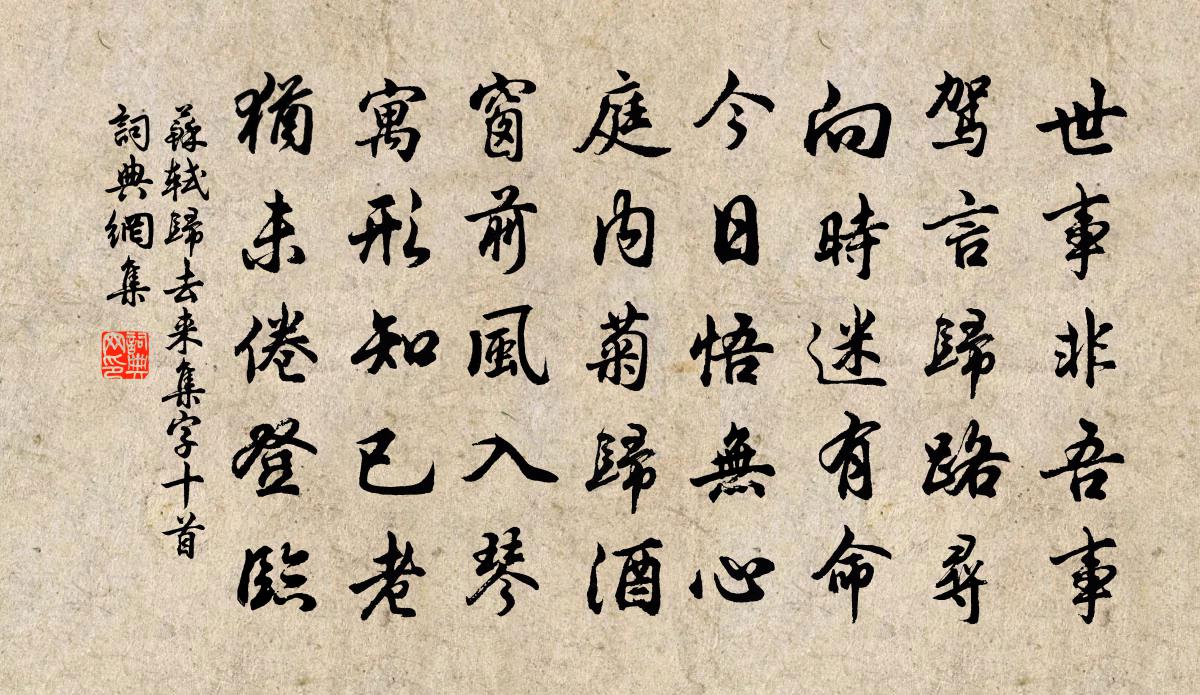 世事非吾事
驾言歸路尋
向時迷有命
今日悟無心
庭内菊歸酒
窗前風入琴
寓形知已老
猶未倦登臨
蘇軾歸去来集字十首
詞典網集
詞典
网印